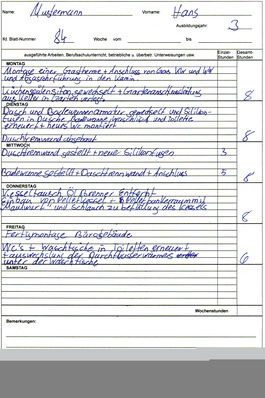 Name: Mustermann Vorname: Hans
Ausbildungsjahr: 3
lfd. Blatt-Nummer 84 Woche vom bis
ausgeführte Arbeiten, Berufsschulunterricht, betriebliche u. überbetr. Unterweisungen usw. Einzel-Stunden Gesamt-Stunden
MONTAG
Montage einer Gastherme + Anschluss von Gas, KW und WW
und Abgasrohrführung in den Kamin.
Küchenspülensiton gewechselt + Gartenanschlussleitung
aus Keller in Garten verlegt 8
DIENSTAG
Dusch und Badewannenarmatur gewechselt und Silikon-
fugen in Dusche, Badewanne, Waschtisch und Toilette
erneuert + neues WC montiert
Duschtrennwand abgebaut 8
MITTWOCH
Duschtrennwand gestellt + neue Silikonfugen 3
Badewanne gestellt + Duschtrennwand + Anschluss 5 8
DONNERSTAG
Kesseltausch Ölbrenner entfernt
Einbau von Pelletkessel + Pelletbunkerraum mit
Maulwurf und Schlauch zu befüllung des Kessels 8
FREITAG
Fertigmontage Bürogebäude
Wc's + Waschtische in Toiletten erneuert,
+ auswechslung der Durchflusserwärmer
unter der Waschtische 6
SAMSTAG
Wochenstunden
Bemerkungen: